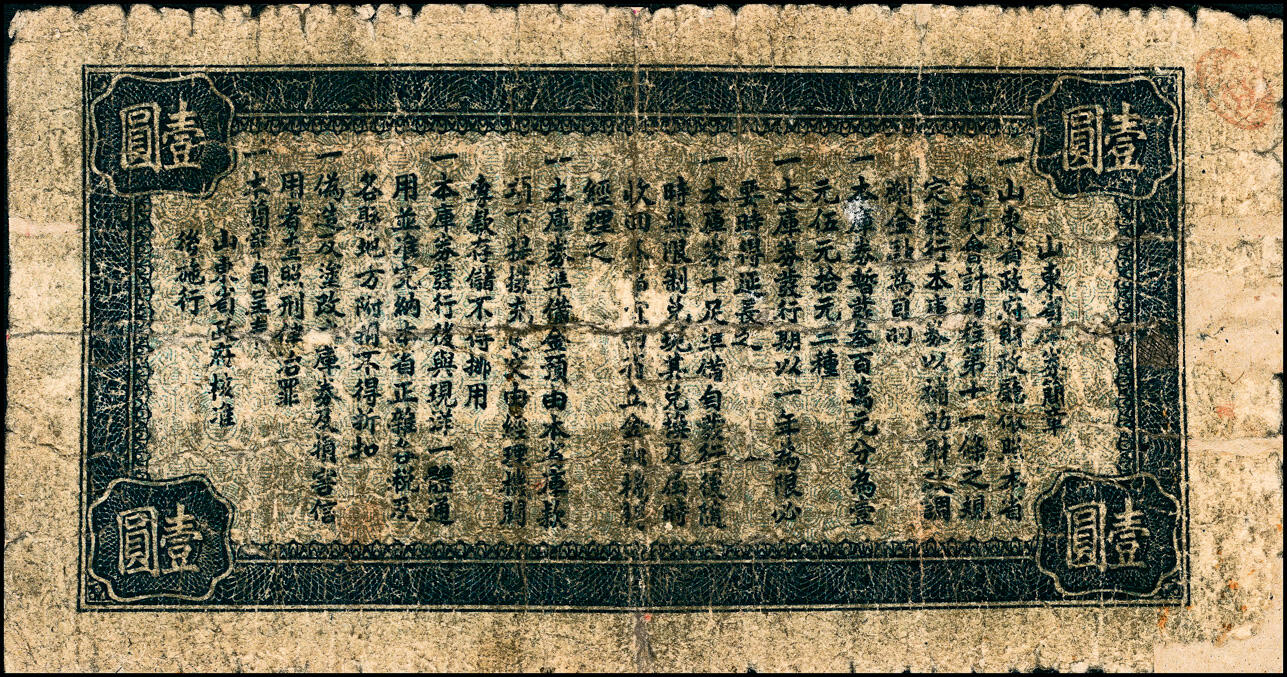 壹圓
壹圓
山東省庫券簡章
一山東省政府財政廳依照本省
暫行會計規程第十一條之規
定發行本庫券以補助財政調
劑金融為目的
一本庫券暫發叁百萬元分為壹
元伍元拾元三種
一本庫券發行期以一年為限必
要時得延長之
一本庫券十足準備自發行後隨
時無限制兌現其兌換及屆時
收回本立金融機關
經理之
一本庫券準備金預由本省庫款
項下提撥充交由經理機關
專款存儲不得挪用
一本庫券發行後與現洋一體通
用並准完納本省正雜各稅及
各縣地方附捐不得折扣
一偽造及塗改庫券及損害信
用者查照刑律治罪
一本簡章自呈奉
山東省政府核准
施行
壹圓
壹圓